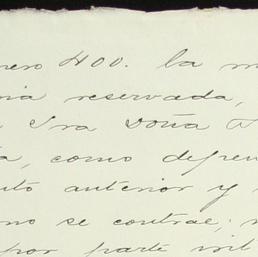 nero 400. la m
nia reservada,
Sra Doña A
a, como defren
to anterior y
no se contrae;
por parte